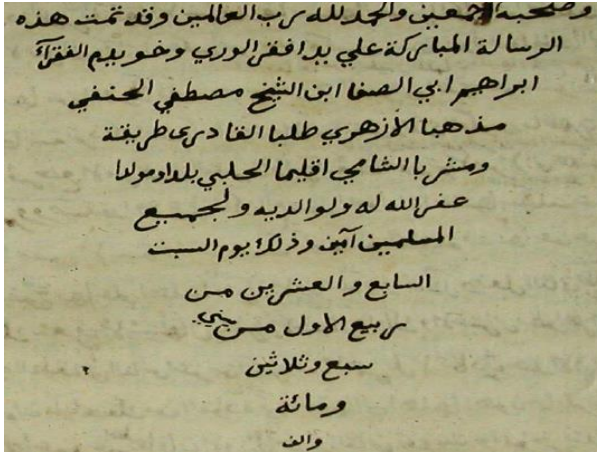 وصحبه اجمعين والحمد لله رب العالمين وقد تمت هذه
الرسالة المباركة علي يد افقر الوري وخويدم الفقرآء
ابراهيم ابي الصفا ابن الشيخ مصطفي الحنفي
مذهبا الأزهري طلبا القادري طريقة
ومشربا الشامي اقليما الحلبي بلدا ومولدا
غفر الله له ولوالديه ولجميع
المسلمين آمين وذلك يوم السبت
السابع والعشرين من
ربيع الاول من سني
سبع وثلاثين
ومائة
والف